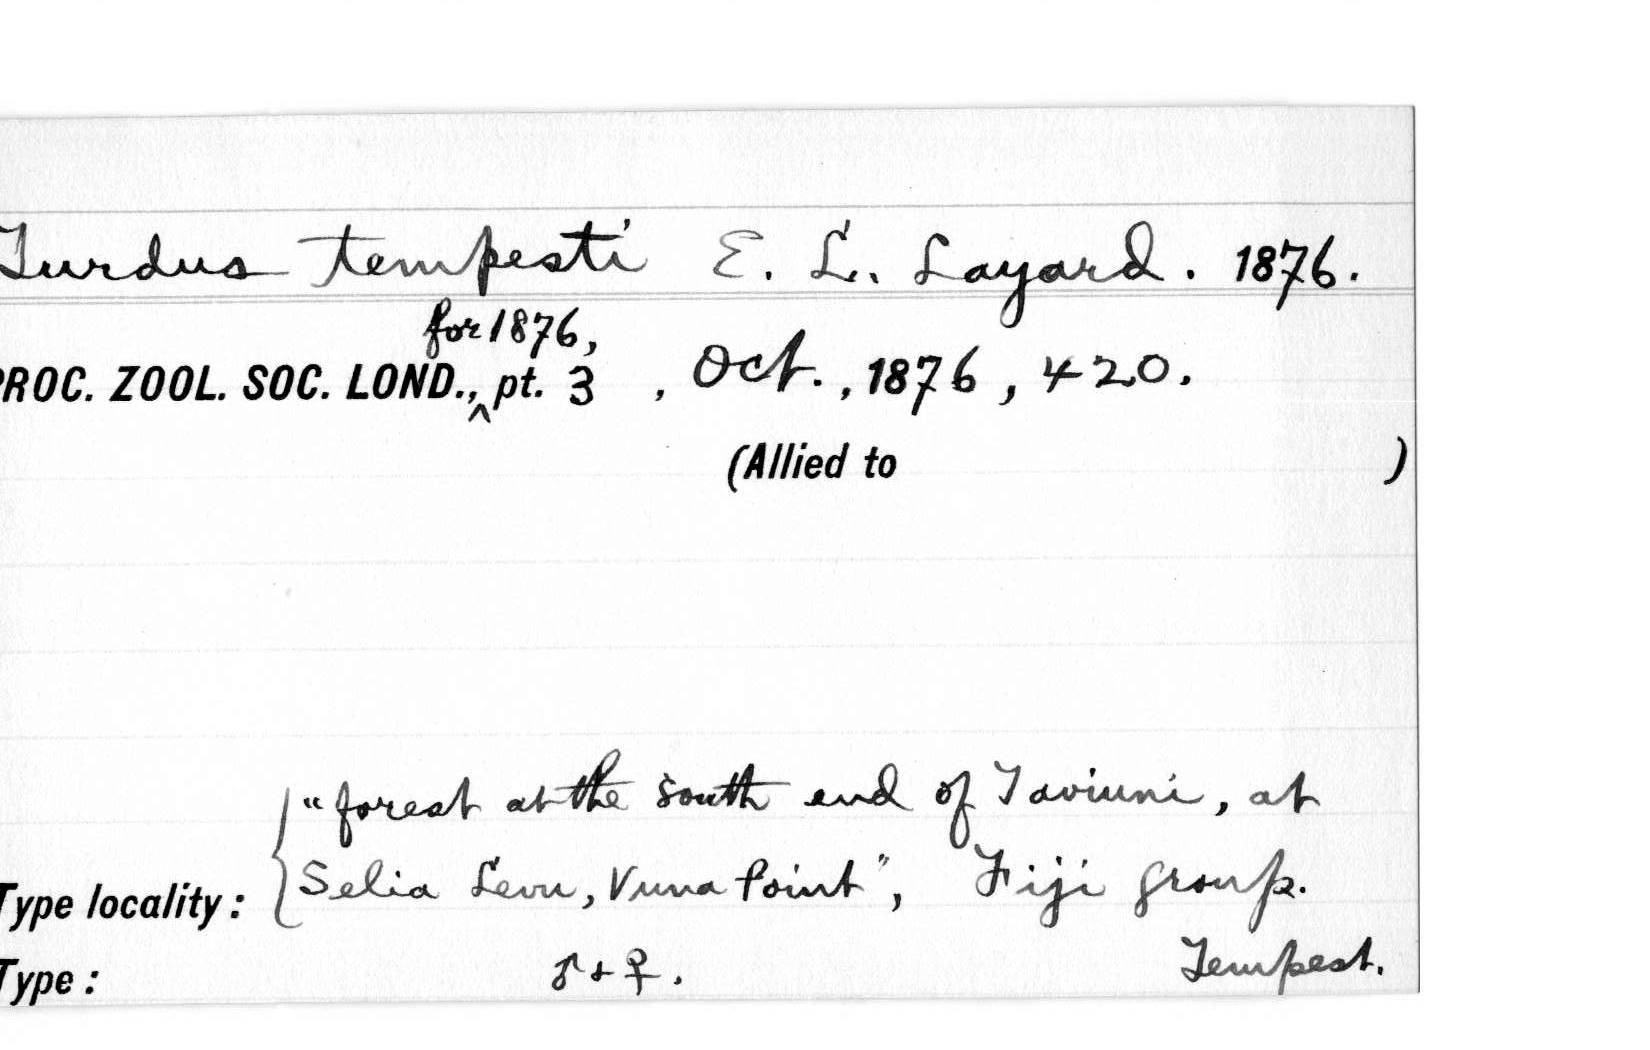 Turdus tempesti E. L. Layard. 1876.
for 1876,
PROC. ZOOL. SOC. LOND., ^ pt. 3 , Oct. , 1876 , 420.
(Allied to )
"forest at the south end of Taviuni, at
Type locality: Selia Levu, Vuna Point", Fiji group.
Type: ♂ + ♀. Tempest.